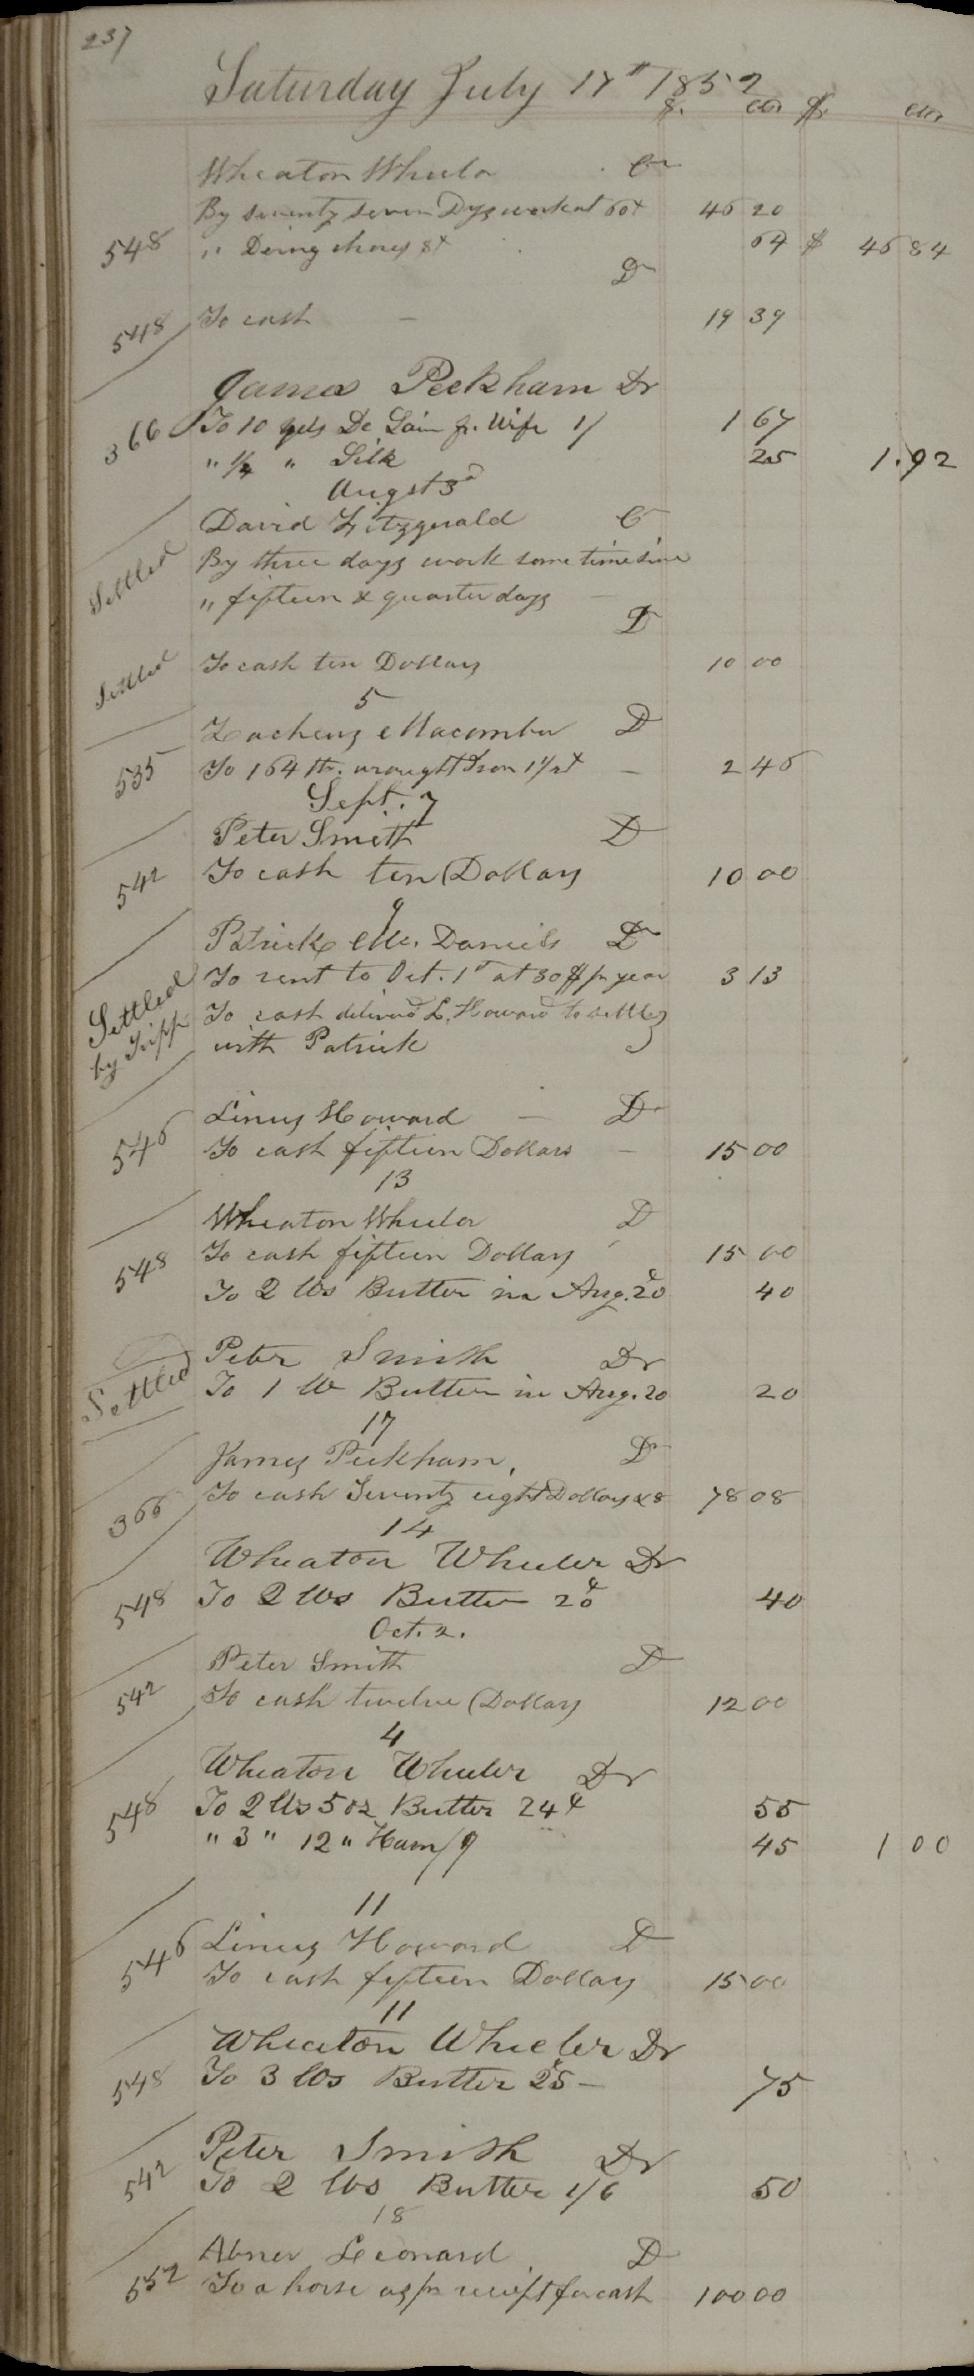 237
Saturday July 17th 1852
$. cts $ cts
Wheaton Wheeler Cr
By seventy seven Dys work at 60¢ 46 20
548 " Doing chores 8¢ 64 $ 46 84
Dr
548 To cash - 19 39
James Peckham Dr
366 To 10 yds De Lain fr. Wife 1/ 1 67
" 1/4 " Silk 25 1.92
Augst 3d
David Fitzgerald Cr
Settled By three days work some time since
" fifteen & quarter days -
Dr
Settled To cash ten Dollars 10 00
5
Zacheus Macomber D
535 To 164 lb. wrought Iron 1 1/2¢ - 2 46
Sept. 7
Peter Smith D
542 To cash ten Dollars 10 00
9
Patrick Mc. Daniels Dr
To rent to Oct. 1st at 30 $ pr year 3 13
Settled To cash delivered L. Howard to settle
by Tripp with Patrick
Linus Howard - Dr
546 To cash fifteen Dollars - 15 00
13
Wheaton Wheeler D
548 To cash fifteen Dollars 15 00
To 2 lbs Butter in Aug. 20¢ 40
Peter Smith Dr
Settled To 1 lb Butter in Aug. 20 20
17
James Peckham, Dr
366 To cash Seventy eight Dollars & 8 78 08
14
Wheaton Wheeler Dr
548 To 2 lbs Butter 20¢ 40
Oct. 2.
Peter Smith D
542 To cash twelve Dollars 12 00
4
Wheaton Wheeler Dr
548 To 2 lbs 5 oz Butter 24¢ 55
" 3 " 12 " Ham /9 45 1 00
11
546 Linus Howard D
To cash fifteen Dollars 15 00
11
Wheaton Wheeler Dr
548 To 3 lbs Butter 25¢ - 75
Peter Smith Dr
542 To 2 lbs Butter 1/6 50
18
Abner Leonard D
552 To a horse as pr receipt for cash 100 00